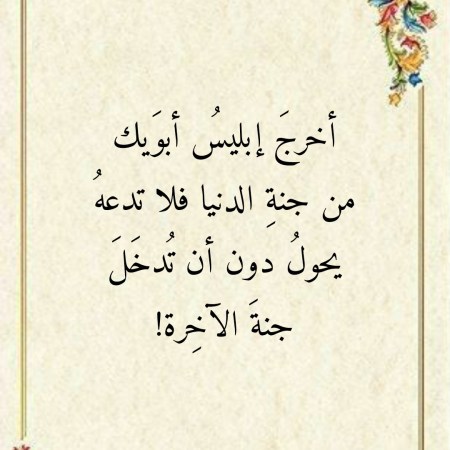 أخرجَ إبليسُ أبوَيك
من جنةِ الدنيا فلا تدعهُ
يحولُ دون أن تُدخَلَ
جنةَ الآخِرة!